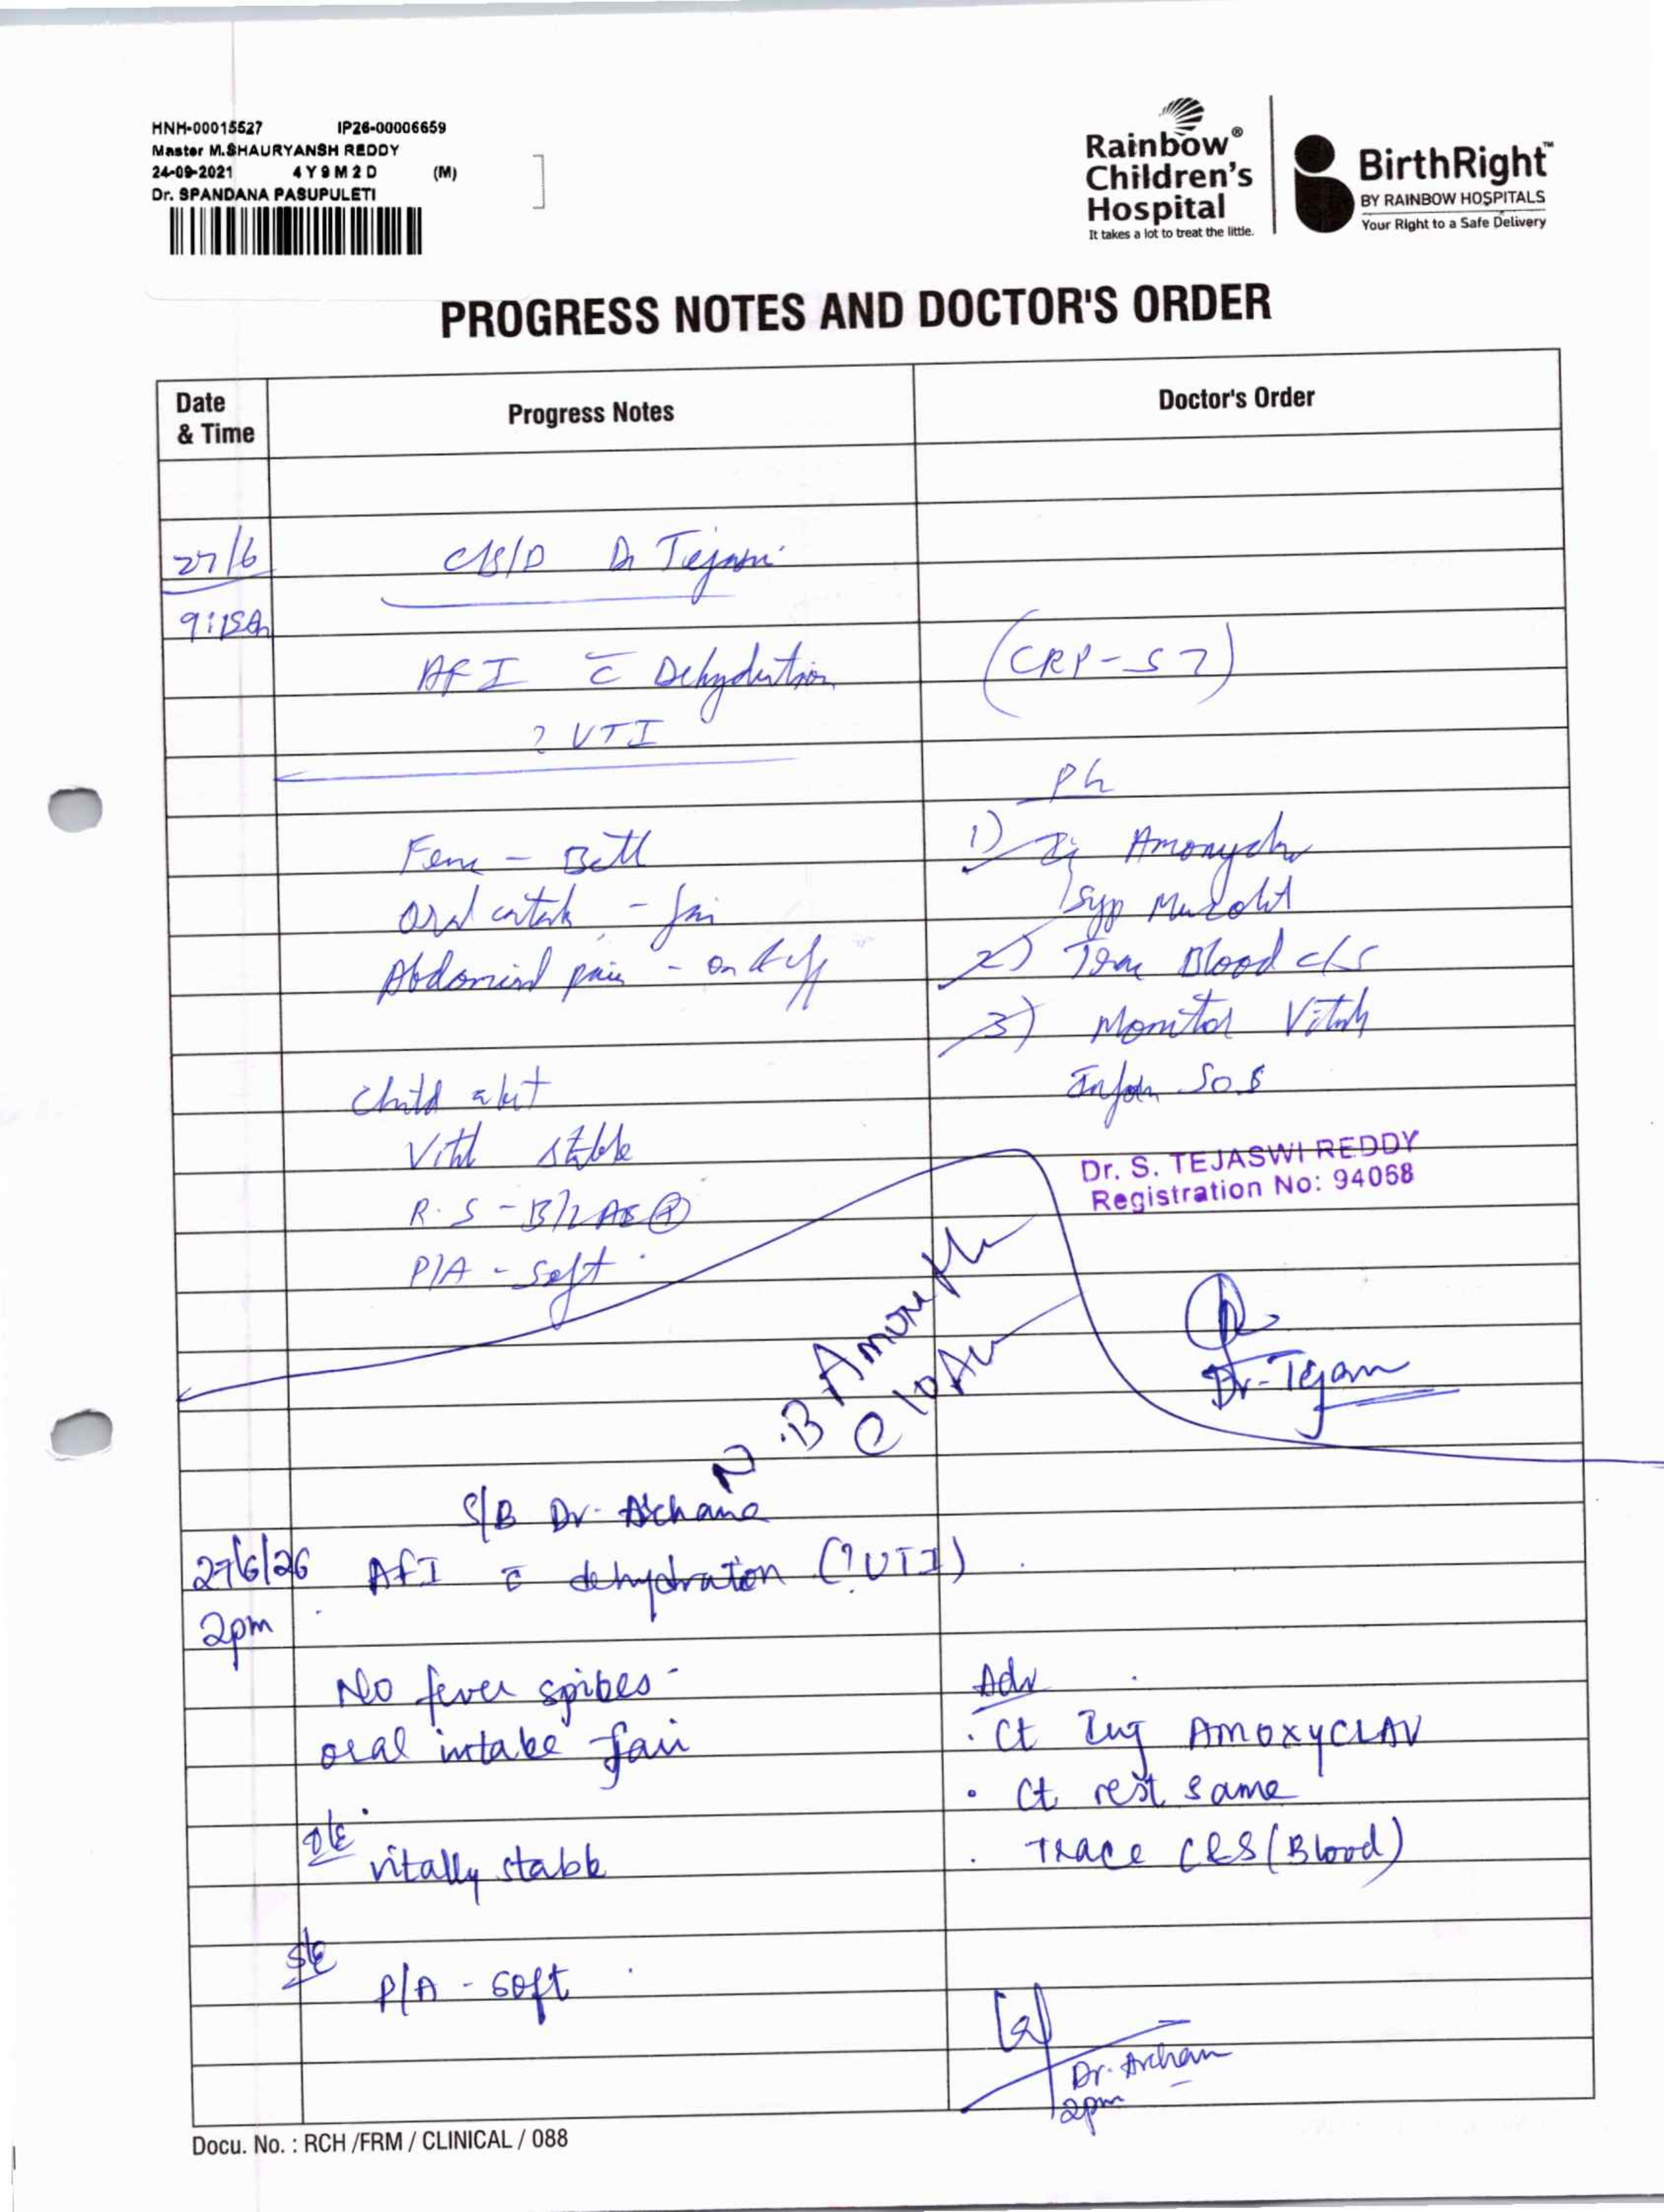 HNH-00015527 IP26-00006659
Master M.SHAURYANSH REDDY
24-09-2021 4Y9M2D (M)
Dr. SPANDANA PASUPULETI
Rainbow®
Children's
Hospital
It takes a lot to treat the little.
BirthRight™
BY RAINBOW HOSPITALS
Your Right to a Safe Delivery
PROGRESS NOTES AND DOCTOR'S ORDER
Date
& Time
Progress Notes
Doctor's Order
27/6
C/S/D Dr Tejaswi
9:15am
AFI c̄ Dehydration
(CRP-57)
? UTI
Fever - Better
Oral intake - fair
Abdominal pain - on & off
1) Inj Amoxyclav
Syp
2) Trace Blood c/s
3) Monitor Vitals
Inform SOS
Child alert
Vital stable
R.S - B/L AE (P)
P/A - soft
Dr. S. TEJASWI REDDY
Registration No: 94068
@ 10Am
S/B Dr. Archana
27/6/26 AFI c̄ dehydration (?UTI)
2pm
No fever spikes
oral intake fair
O/E
vitally stable
S/E
P/A - soft
Adv
. Ct Inj AMOXYCLAV
. Ct rest same
. TRACE C&S (Blood)
Dr. Archana
2pm
Docu. No. : RCH /FRM / CLINICAL / 088